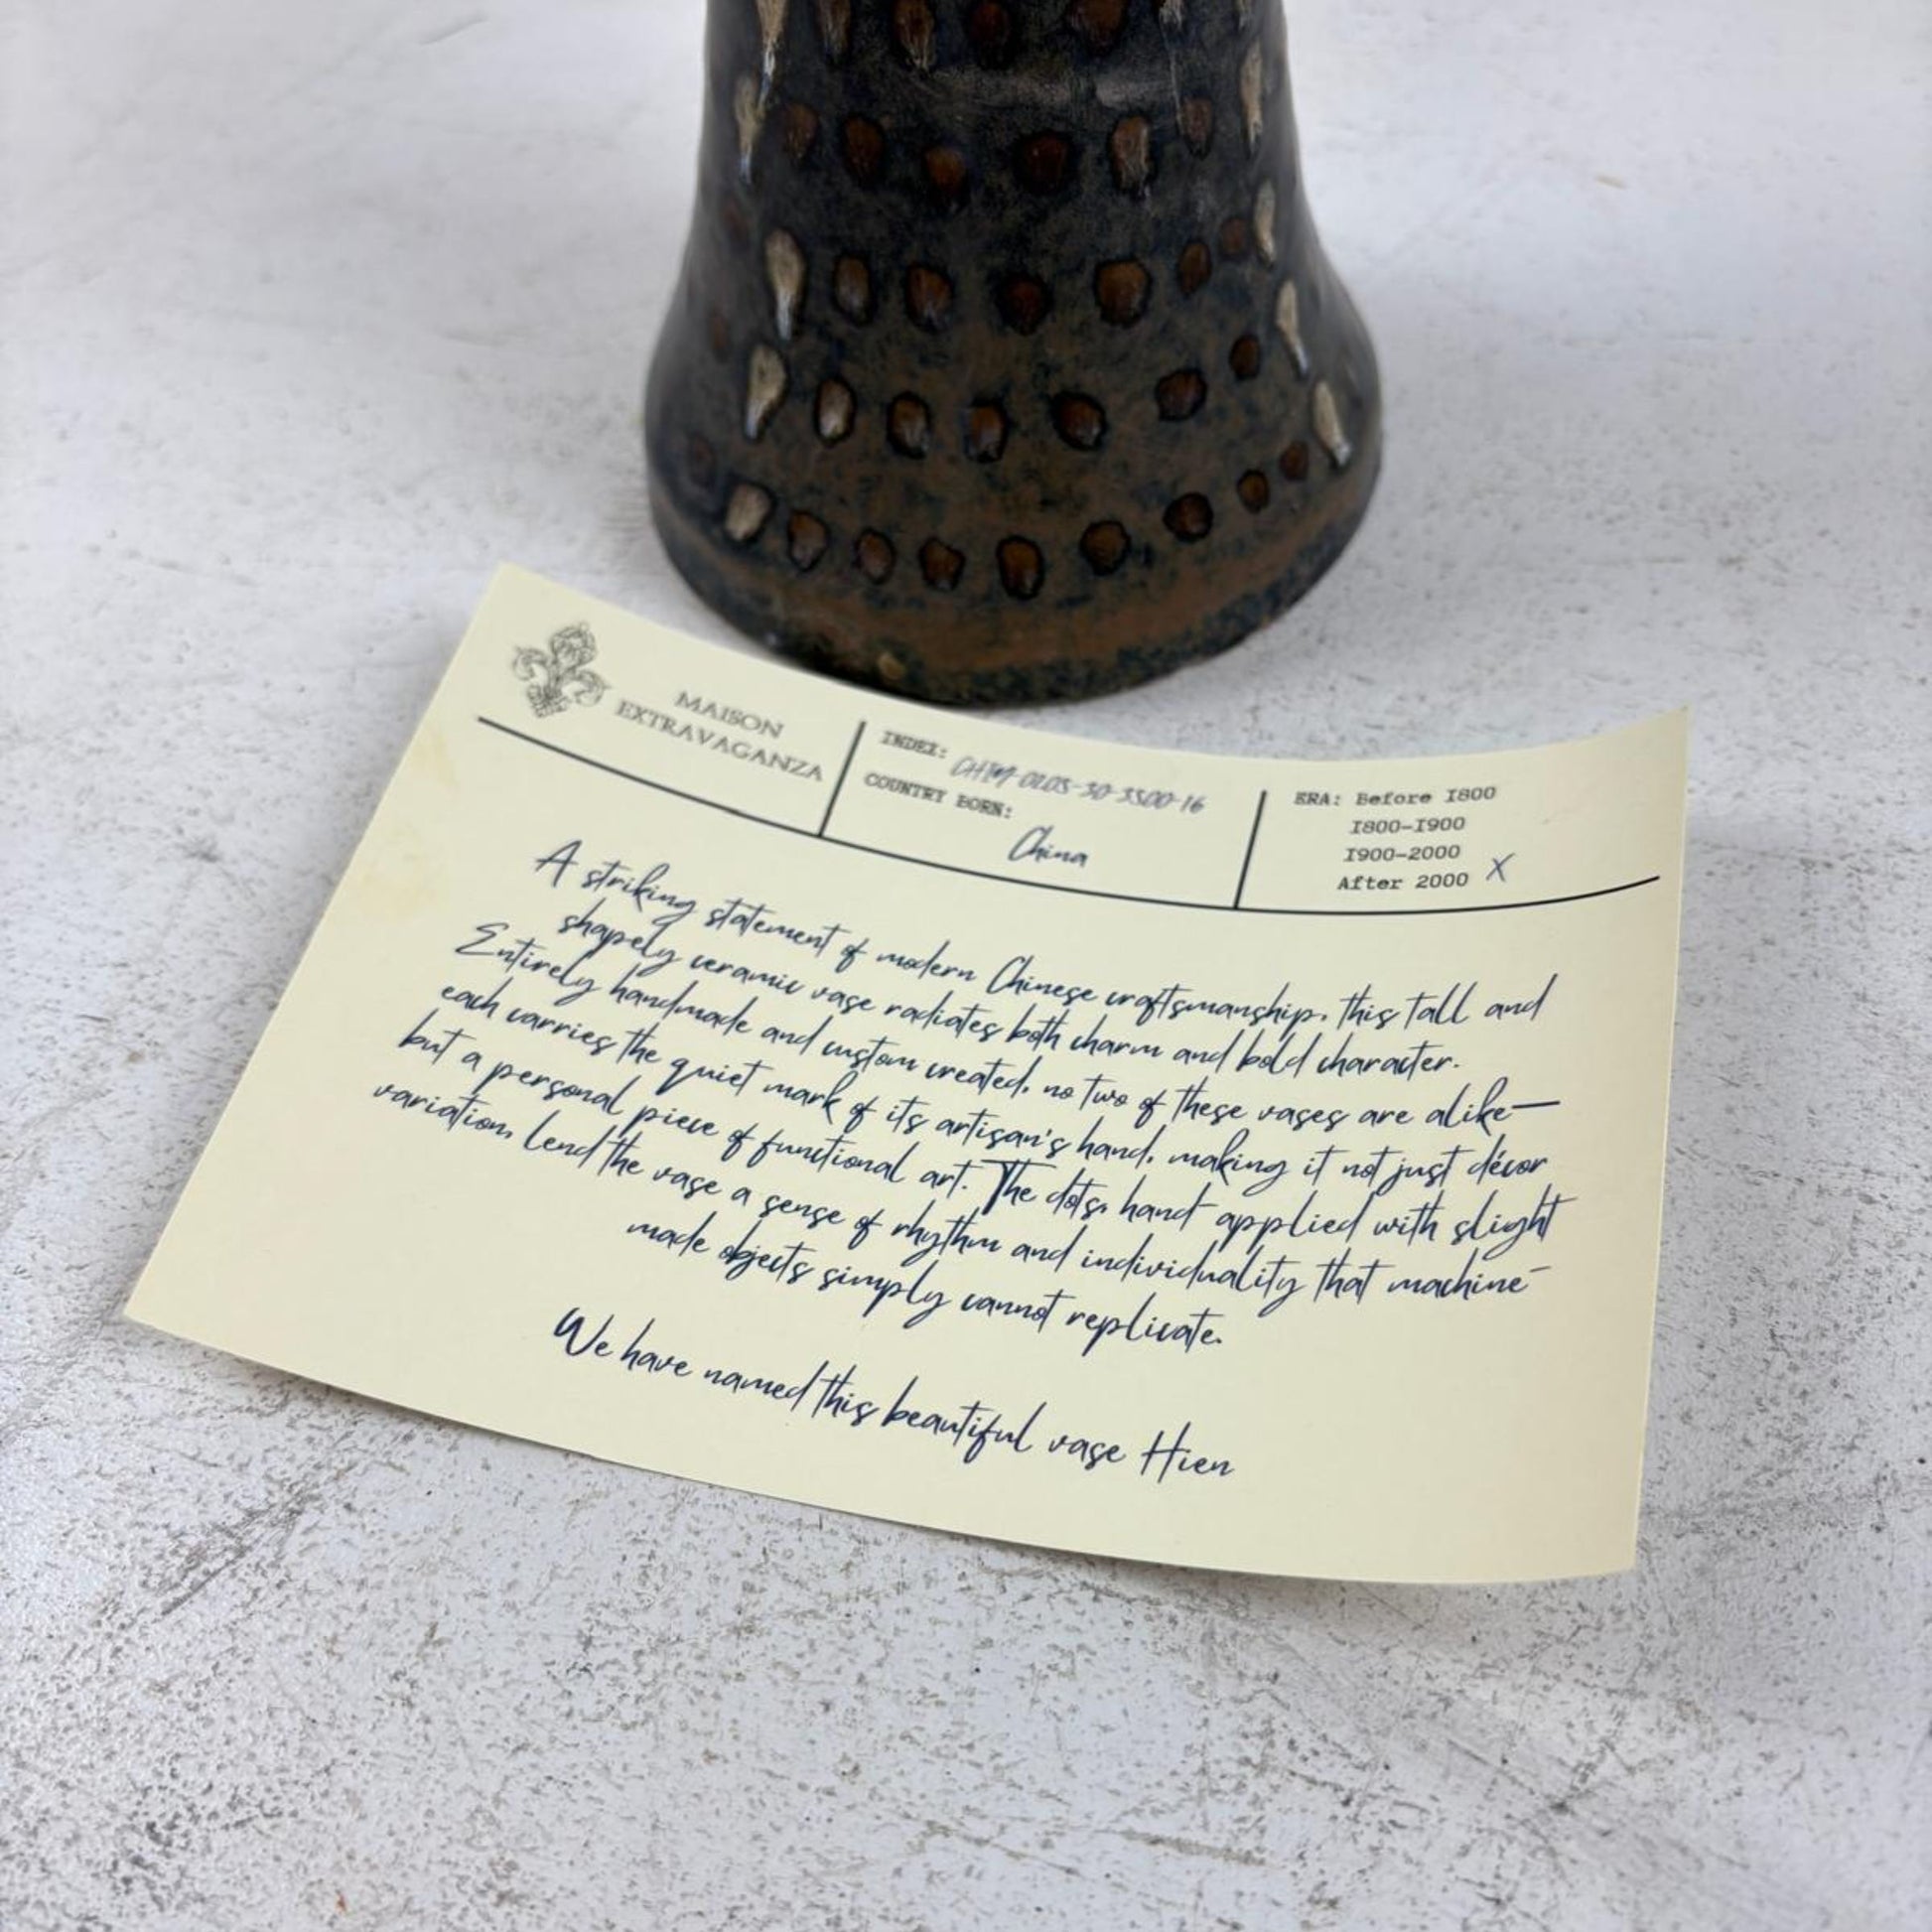 MAISON
EXTRAVAGANZA
INDEX:
COUNTRY BORN:
China
ERA: Before 1800
1800-1900
1900-2000
After 2000 X
A striking statement of modern Chinese craftsmanship, this tall and
shapely ceramic vase radiates both charm and bold character.
Entirely handmade and custom created, no two of these vases are alike—
each carries the quiet mark of its artisan's hand, making it not just décor
but a personal piece of functional art. The dots, hand-applied with slight
variation, lend the vase a sense of rhythm and individuality that machine-
made objects simply cannot replicate.
We have named this beautiful vase Hien